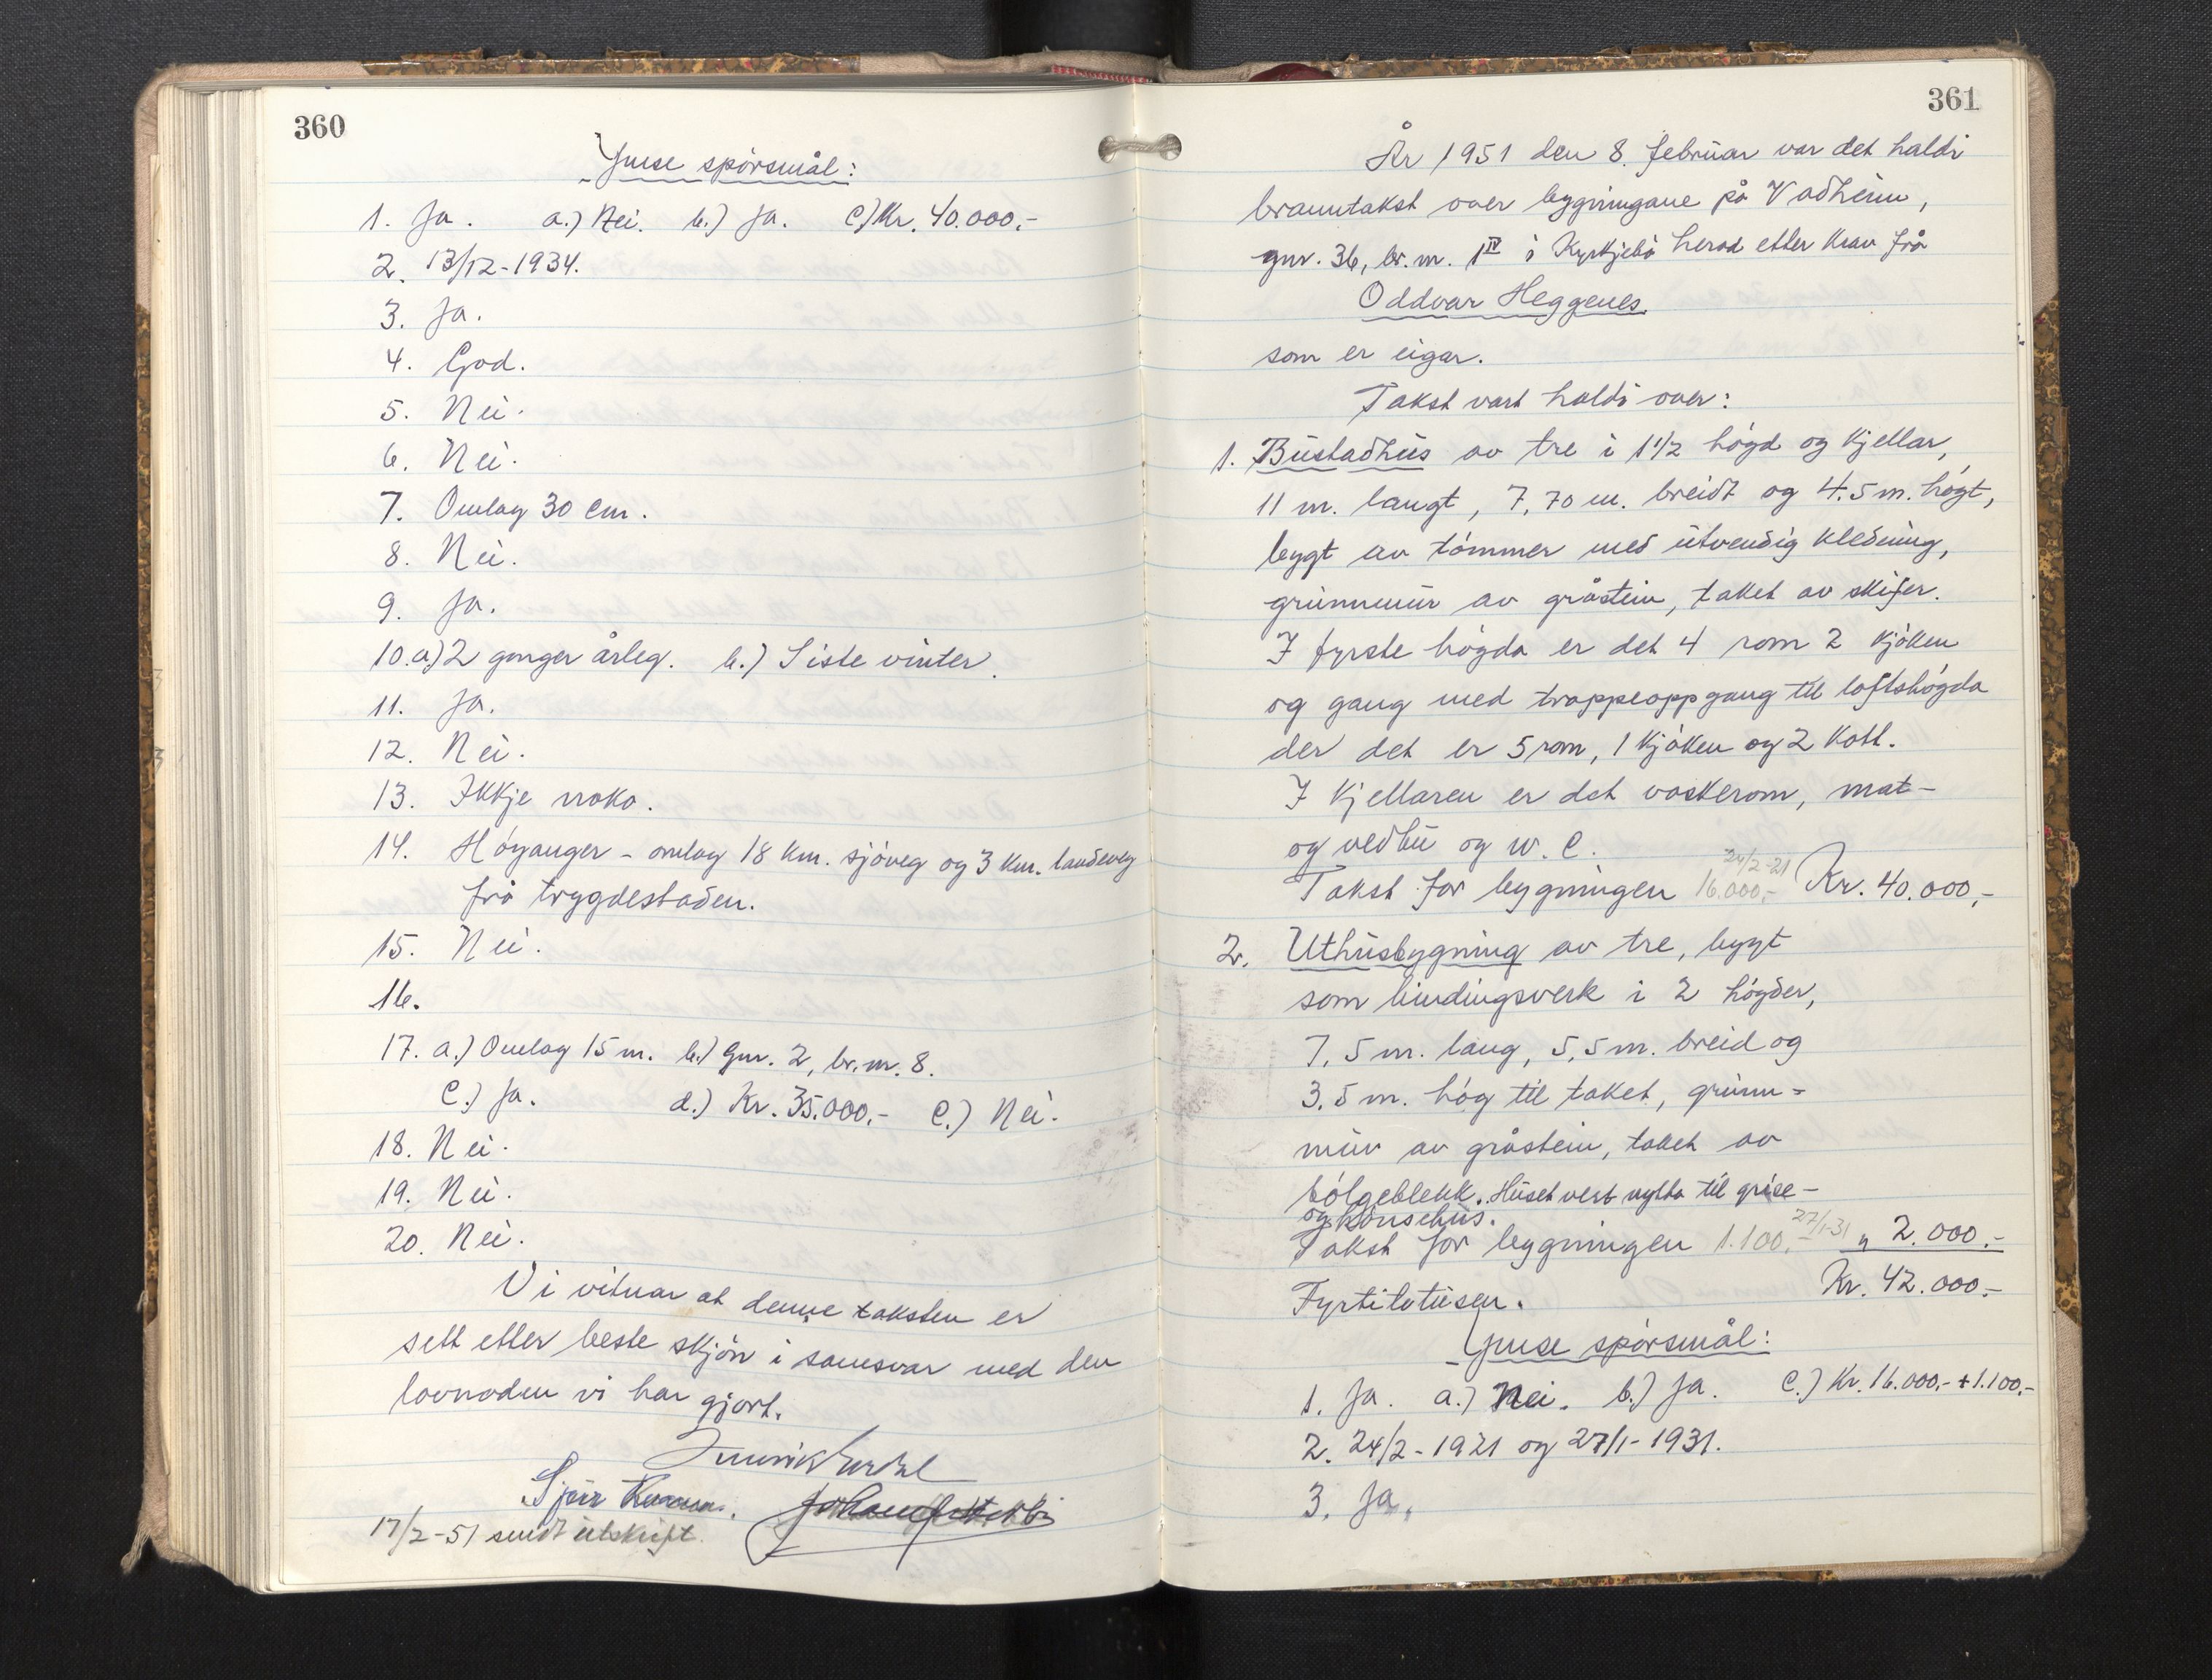 360
Ymse spörsmål:
1. Ja. a.) Nei. b.) Ja. c.) Kr. 40.000,-
2. 13/12-1934.
3. Ja.
4. God.
5. Nei.
6. Nei.
7. Omlag 30 cm.
8. Nei.
9. Ja.
10. a.) 2 gonger årleg. b.) Siste vinter.
11. Ja.
12. Nei.
13. Ikkje noko.
14. Höyanger - omlag 18 km. sjöveg og 3 km. landeveg
frå trygdestaden.
15. Nei.
16.
17. a.) Omlag 15 m. b.) Gnr. 2, br.nr. 8.
c.) Ja. d.) Kr. 35.000,- e.) Nei.
18. Nei.
19. Nei.
20. Nei.
Vi vitnar at denne taksten er
sett etter beste skjön i samsvar med den
lovnaden vi har gjort.
17/2-51 sendt utskrift.
361
År 1951 den 8. februar var det haldi
branntakst over bygningane på Vadheim,
gnr. 36, br.nr. 1 IV i Kyrkjebö herad etter krav frå
Oddvar Heggenes
som er eigar.
Takst vart haldi over:
1. Bustadhus av tre i 1 1/2 högd og kjellar,
11 m. langt, 7,70 m. breidt og 4.5 m. högt,
bygt av tömmer med utvendig kledning,
grunnmur av gråstein, taket av skifer.
I fyrste högda er det 4 rom 2 kjöken
og gang med trappeoppgang til loftshögda
der det er 5 rom, 1 kjöken og 2 kott.
I kjellaren er det vaskerom, mat-
og vedbu og w.c.
24/2-21
Takst for bygningen 16.000,- Kr. 40.000,-
2. Uthusbygning av tre, bygt
som bindingsverk i 2 högder,
7,5 m. lang, 5,5 m. breid og
3,5 m. hög til taket, grunn-
mur av gråstein, taket av
bölgeblekk. Huset vert nytta til grise-
og hönsehus.
27/1-31
Takst for bygningen 1.100,- " 2.000.-
Kr. 42.000.-
Fyrtitotusen.
Ymse spörsmål:
1. Ja. a.) Nei. b.) Ja. c.) Kr. 16.000,- + 1.100,-
2. 24/2-1921 og 27/1-1931.
3. Ja.